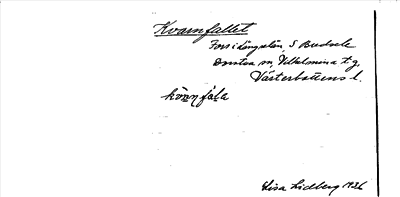 Kvarnfallet
Forsidängselån, S Bredsele
Dorotea sn, Vilhelmina t.g.
Västerbottens l.
ko̤nnfala
Lisa Lidberg 1936